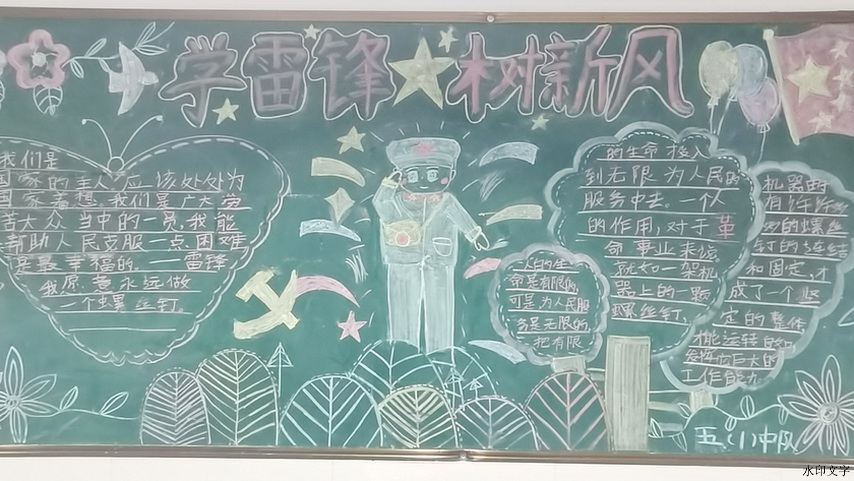 学雷锋 树新风
我们是
国家的主人,应该处处为
国家着想,我们是广大劳
苦大众当中的一员,我能
帮助人民克服一点困难
是最幸福的。—雷锋
我愿意永远做
一个螺丝钉。
人的生
命是有限的
可是为人民服
务是无限的
把有限
的生命投入
到无限为人民的
服务中去。一个人
的作用,对于革
命事业来说
就如一架机
器上的一颗
螺丝钉。
机器的
有许许
多的螺丝
钉的连结
和固定,才
成了一个坚
定的整体
才能运转自如
发挥它巨大的
工作能力
五(1)中队
水印文字